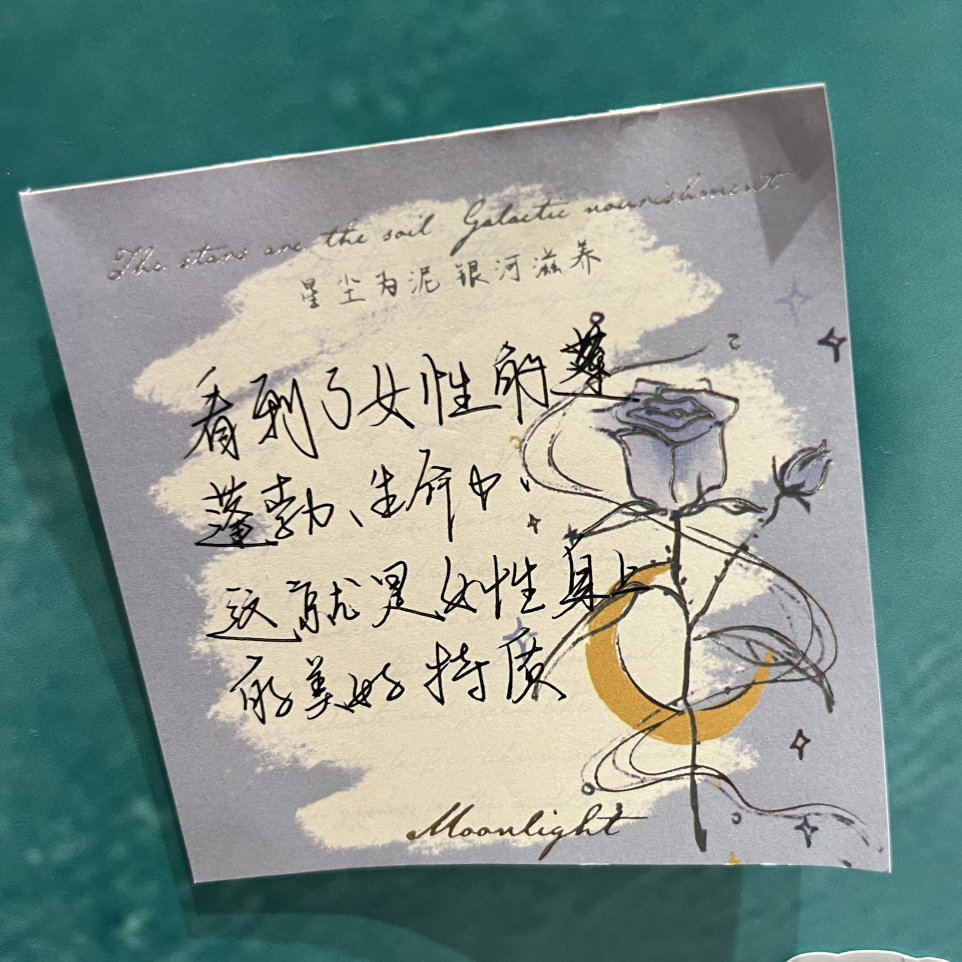 The stars are the soil Galactic nourishment
星尘为泥 银河滋养
看到了女性的
蓬勃、生命力、
这就是女性身上
的美好特质
Moonlight